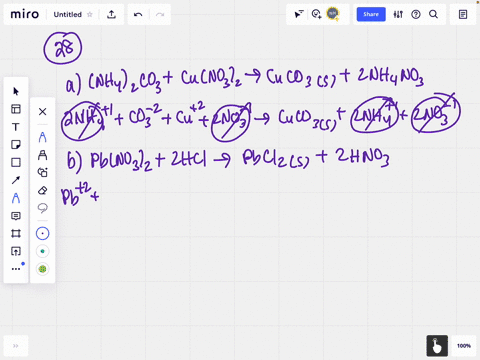 miro Untitled Share 
28
a) (NH4)2CO3 + Cu(NO3)2 → CuCO3(s) + 2NH4NO3
2NH4+1 + CO3-2 + Cu+2 + 2NO3-1 → CuCO3(s) + 2NH4+1 + 2NO3-1
b) Pb(NO3)2 + 2HCl → PbCl2(s) + 2HNO3
Pb+2 +
100%